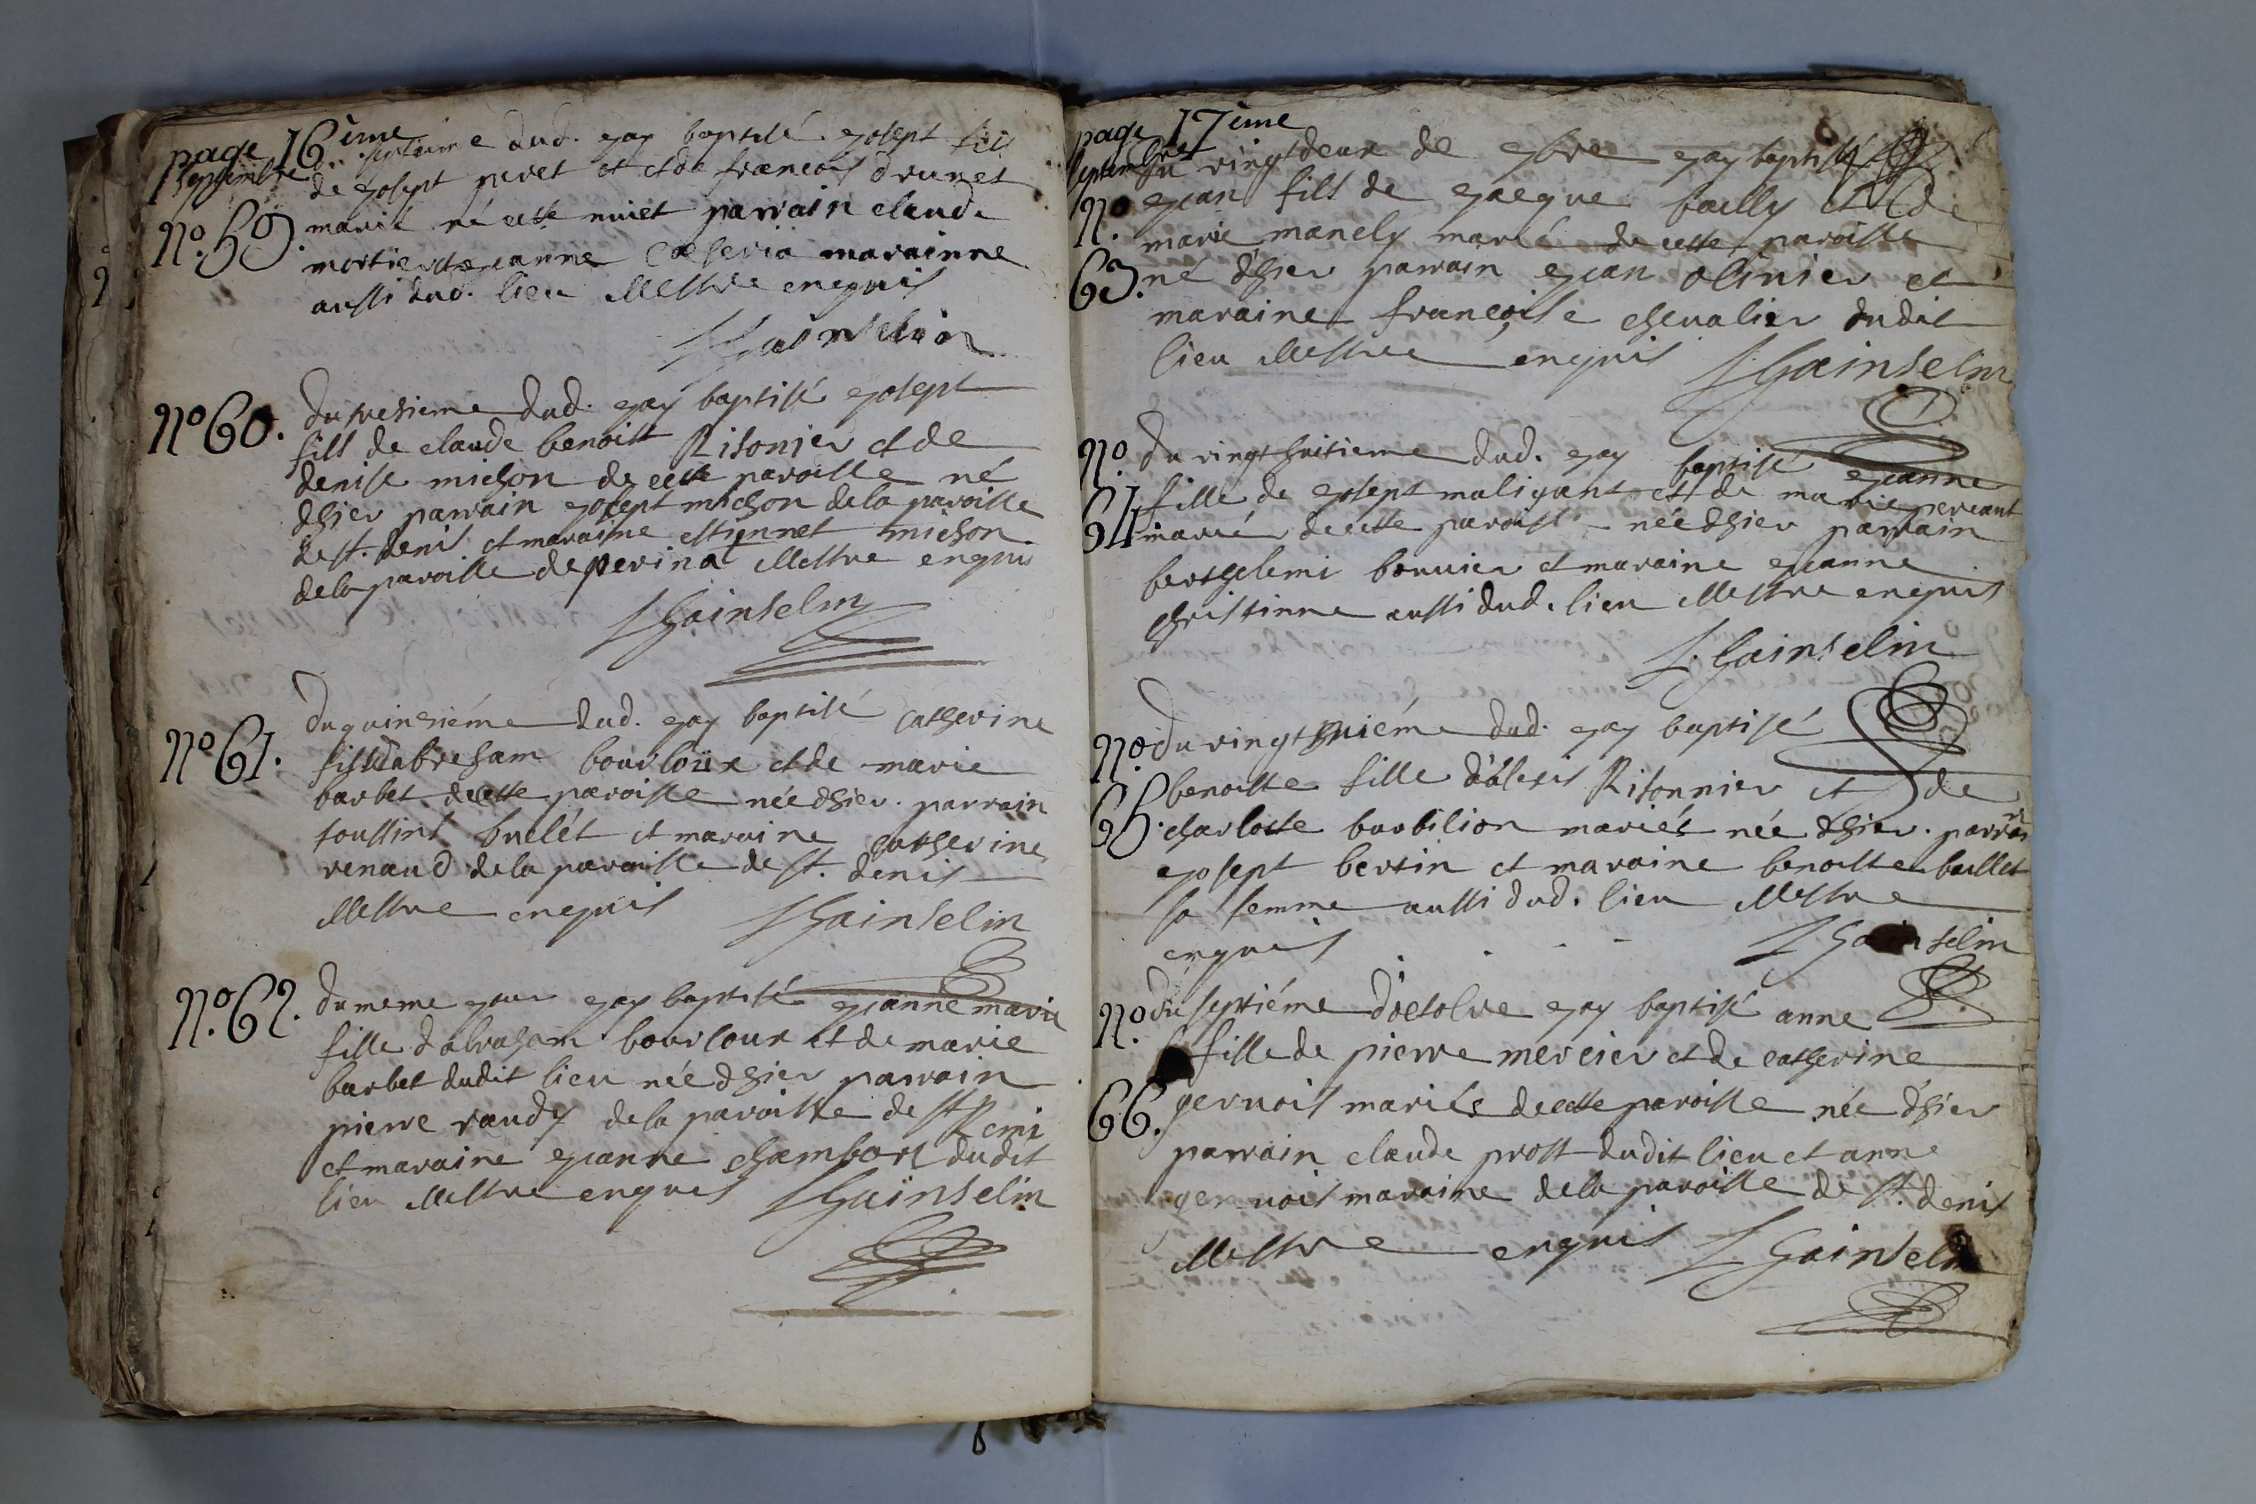 page 16ième
septembre
du septieme dud. ejay baptisé joseph fils
de joseph peret et et de francois brunet
No. 59. marié né cette nuict parrain claude
mortier et jeanne marainne
aussi dud. lieu illettre enquis
J Gainselin
No 60. du tresieme dud. ejay baptisé joseph
fils de claude benoist Risonier et de
denise michon de cette paroisse né
dhier parrain joseph michon de la paroisse
de st. denis et maraine estiennet michon
de la paroisse de perina illettre enquis
J Gainselin
No 61. du quinsiéme dud. ejay baptisé catherine
fille dabreham bourloux et de marie
barbet de cette paroisse née dhier. parrain
toussint brulét et maraine catherine
renaud de la paroisse de st. denis
illettre enquis J Gainselin
No. 62. du meme jour ejay baptisé jeanne marie
fille dabraham bourloux et de marie
barbet dudit lieu née dhier parrain
pierre raudy de la paroisse de st Remi
et maraine jeanne chambart dudit
lieu illettre enquis J Gainselin
page 17ième
septembre
du vingtdeux de 7bre ejay baptisé
No jean fils de jacque bailly et de
marie manely marié de cette paroisse
63. né d'hier parrain jean olinier et
maraine francoise chevalier dudit
lieu illettre enquis J Gainselin
No. du vingt huitieme dud. ejay baptisé jeanne
fille de joseph maliyant et de marie percant
64 marié de cette paroisse née dhier parrain
barthelemi bouvier et maraine jeanne
christinne aussi dud. lieu illettre enquis
J. Gainselin
No. du vingt nuiéme dud. ejay baptisé
benoitte fille d'alexis Risonnier et de
65. charlotte barbilion mariés née dhier. parrain
joseph bertin et maraine benoitte baillet
sa femme aussi dud. lieu illettre
enquis J Gainselin
No. du septiéme d'octobre ejay baptisé anne
fille de pierre mercier et de catherine
66. gervois mariés de cette paroisse née d'hier
parrain claude prost dudit lieu et anne
gervois maraine de la paroisse de st. denis
illettre enquis J Gainselin